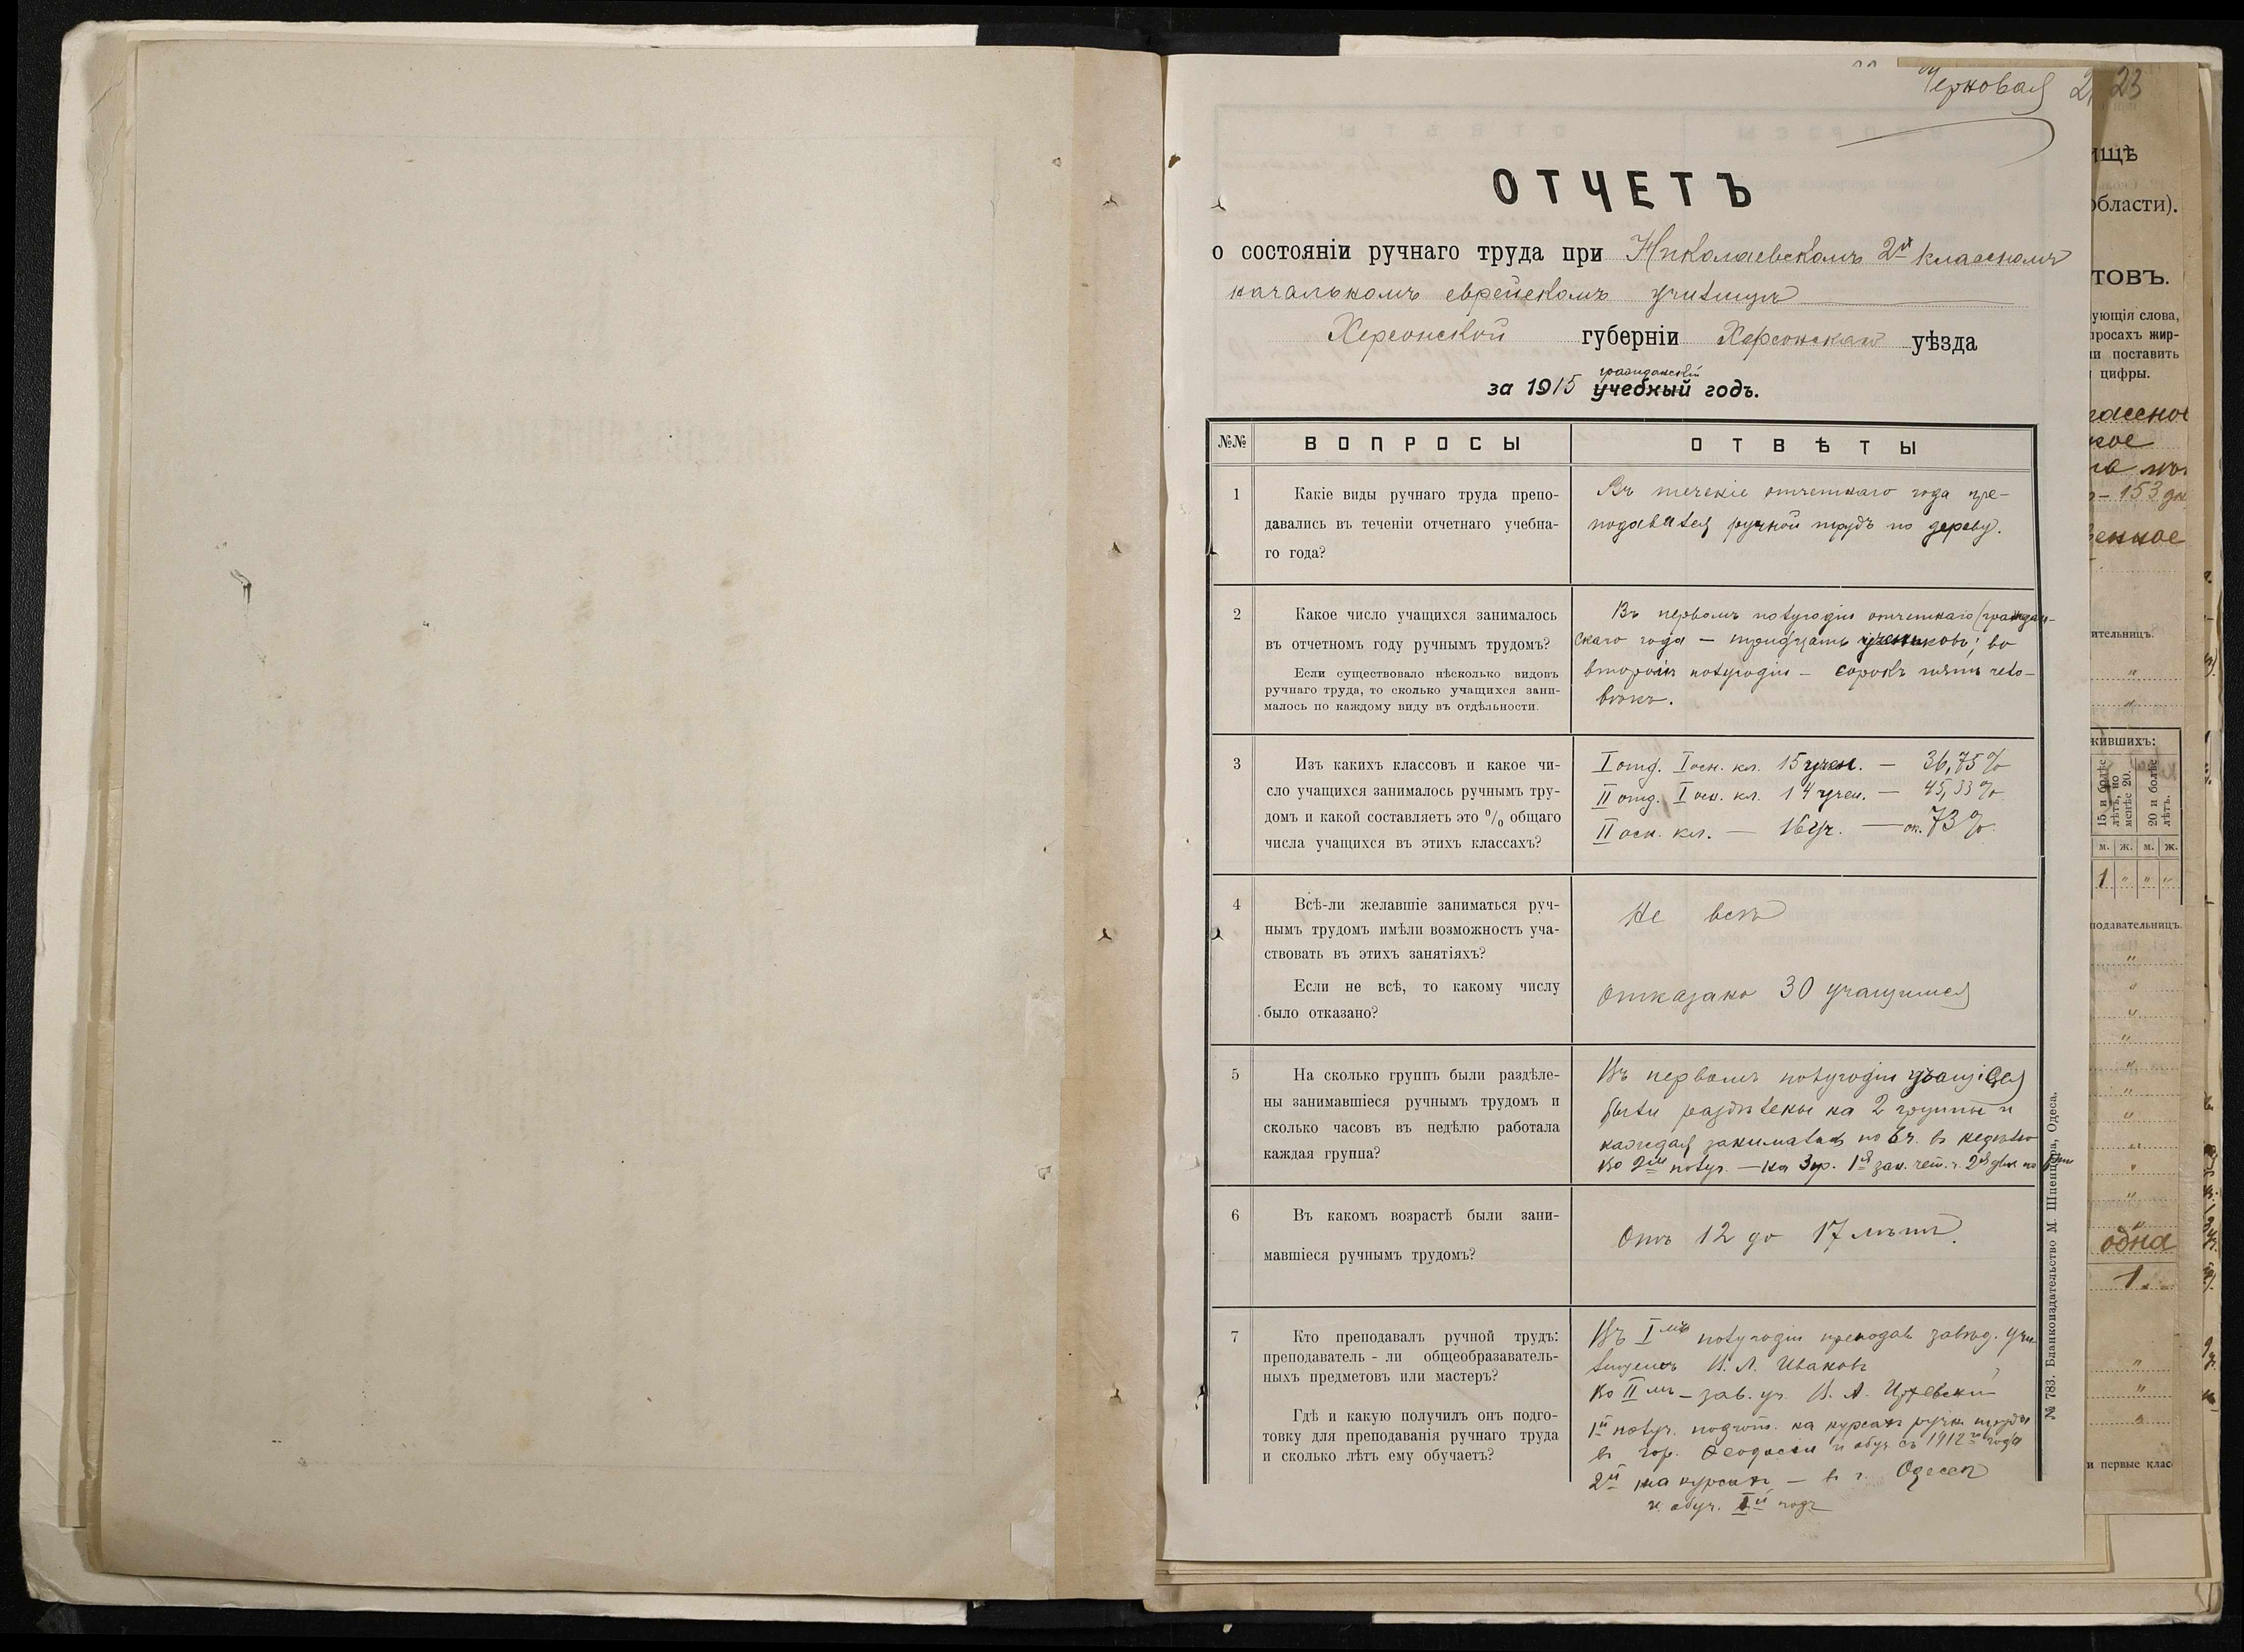 Черновая
23
ОТЧЕТЪ
о состояніи ручнаго труда при Николаевскомъ 2й классномъ
начальномъ еврейскомъ училищѣ
Херсонской губерніи Херсонскаго уѣзда
гражданскій
за 1915 учебный годъ.
№№ ВОПРОСЫ ОТВѢТЫ
1 Какіе виды ручнаго труда препо-
давались въ теченіи отчетнаго учебна-
го года?
Въ теченіе отчетнаго года пре-
подавался ручной трудъ по дереву.
2 Какое число учащихся занималось
въ отчетномъ году ручнымъ трудомъ?
Если существовало нѣсколько видовъ
ручнаго труда, то сколько учащихся зани-
малось по каждому виду въ отдѣльности.
Въ первомъ полугодіи отчетнаго (граждан-
скаго года — тридцать учениковъ; во
второмъ полугодіи — сорокъ пять чело-
вѣкъ.
3 Изъ какихъ классовъ и какое чи-
сло учащихся занималось ручнымъ тру-
домъ и какой составляетъ это % общаго
числа учащихся въ этихъ классахъ?
I отд. I осн. кл. 15 учен. — 36,75%
II отд. I осн. кл. 14 учен. — 45,33%
II осн. кл. — 16 уч. — ок. 73%.
4 Всѣ-ли желавшіе заниматься руч-
нымъ трудомъ имѣли возможность уча-
ствовать въ этихъ занятіяхъ?
Если не всѣ, то какому числу
было отказано?
Не всѣ
Отказано 30 учащимся
5 На сколько группъ были раздѣле-
ны занимавшіеся ручнымъ трудомъ и
сколько часовъ въ недѣлю работала
каждая группа?
Въ первомъ полугодіи учащіеся
были раздѣлены на 2 группы и
каждая занималась по 6 ч. въ недѣлю
Во 2мъ полуг. — на 3 гр. 1я зан. чет. ч. 2я двѣ по
6 Въ какомъ возрастѣ были зани-
мавшіеся ручнымъ трудомъ?
Отъ 12 до 17 лѣтъ.
7 Кто преподавалъ ручной трудъ:
преподаватель - ли общеобразаватель-
ныхъ предметовъ или мастеръ?
Гдѣ и какую получилъ онъ подго-
товку для преподаванія ручнаго труда
и сколько лѣтъ ему обучаетъ?
Въ Iмъ полугодіи преподав. завѣд. учи-
лищемъ В. Л. Ивановъ
Во II мъ — зав. уч. В. А.
1й полуг. подгот. на курсахъ ручн. труда
въ гор. Ѳеодосіи и обуч. съ 1912го года
2й на курсахъ — въ г. Одессѣ
и обуч. Iй годъ
№ 783. Бланкоиздательство М. Шпенцера, Одеса.
ищѣ
области).
товъ.
ующія слова,
просахъ жир-
и поставить
цифры.
153
ительницъ.
жившихъ:
15 и болѣе
лѣтъ, но
менѣе 20.
20 и болѣе
лѣтъ.
м. ж. м. ж.
1 " " "
подавательницъ.
одна
1
и первые клас